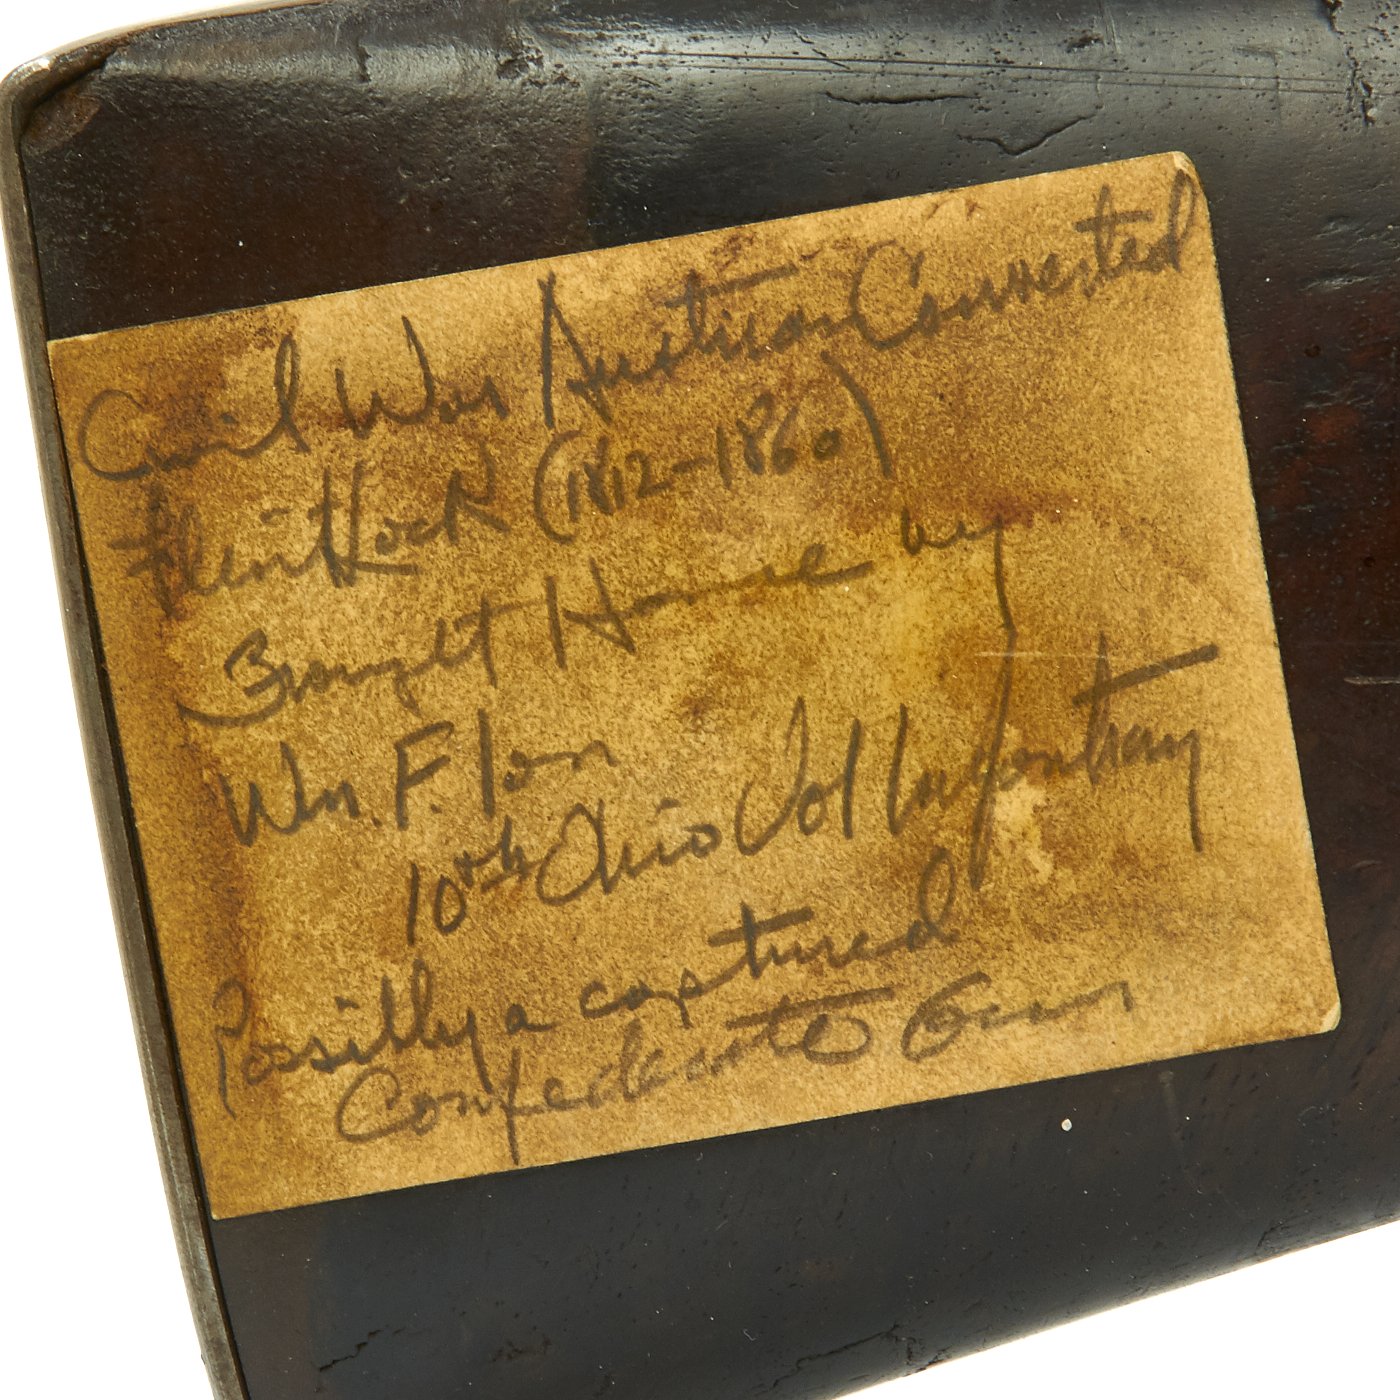 Civil War Austrian Converted
Flintlock (1812-1860)
Brought Home by
Wm. F. Ion
10th Ohio Vol Infantry
Possilly a captured
Confederate Gun